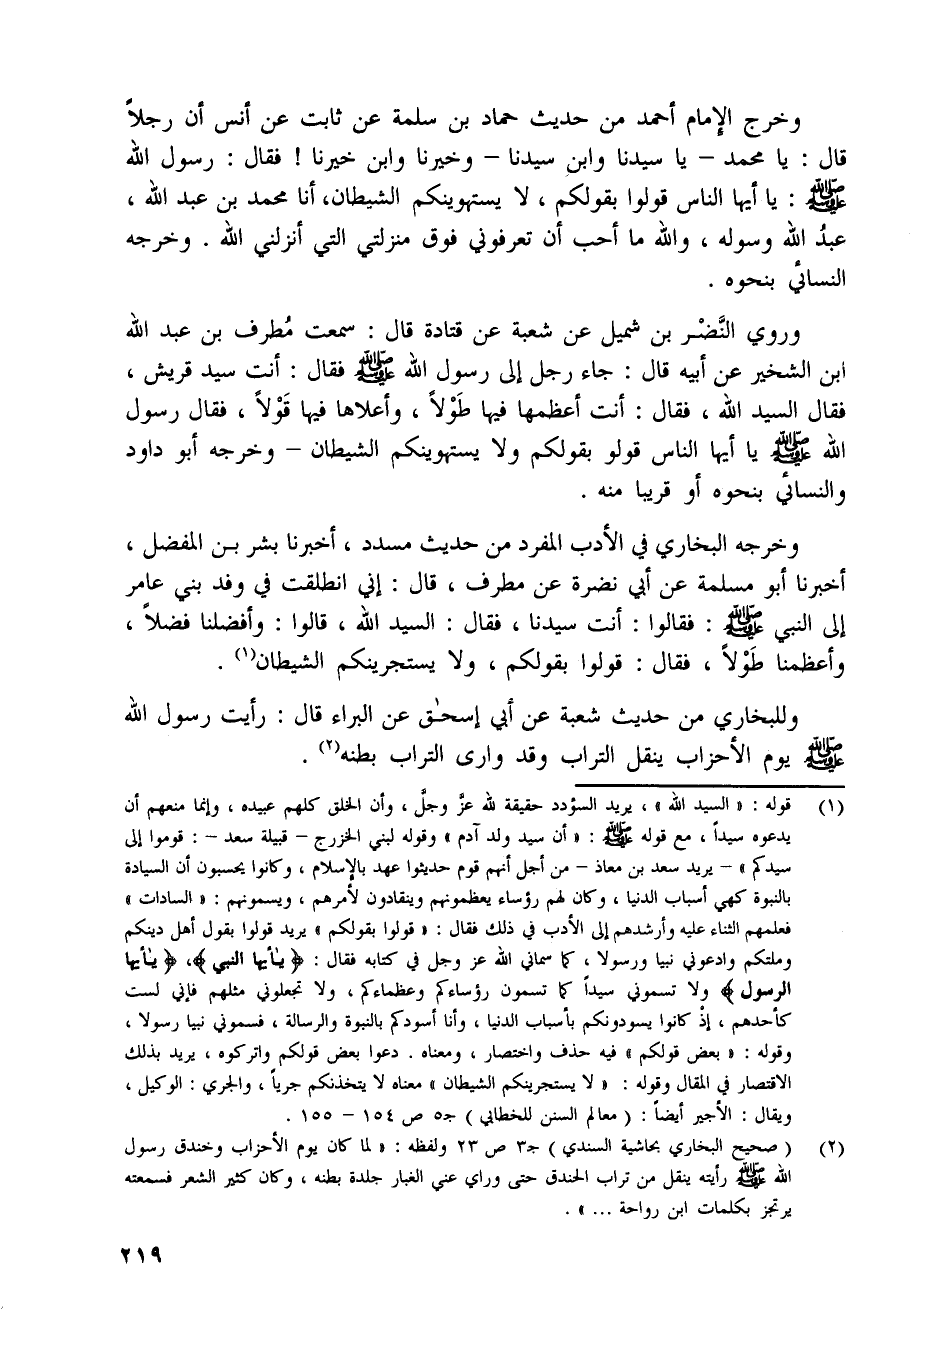 وخرج الإمام أحمد من حديث حماد بن سلمة عن ثابت عن أنس أن رجلاً
قال : يا محمد – يا سيدنا وابنِ سيدنا – وخيرنا وابن خيرنا ! فقال : رسول الله
ﷺ : يا أيها الناس قولوا بقولكم ، لا يستهوينكم الشيطان، أنا محمد بن عبد الله ،
عبدُ الله وسوله ، والله ما أحب أن تعرفوني فوق منزلتي التي أنزلني الله . وخرجه
النسائي بنحوه .
وروي النَّضْر بن شميل عن شعبة عن قتادة قال : سمعت مُطرف بن عبد الله
ابن الشخير عن أبيه قال : جاء رجل إلى رسول الله ﷺ فقال : أنت سيد قريش ،
فقال السيد الله ، فقال : أنت أعظمها فيها طَوْلاً ، وأعلاها فيها قَوْلاً ، فقال رسول
الله ﷺ يا أيها الناس قولو بقولكم ولا يستهوينكم الشيطان – وخرجه أبو داود
والنسائي بنحوه أو قريبا منه .
وخرجه البخاري في الأدب المفرد من حديث مسدد ، أخبرنا بشر بـن المفضل ،
أخبرنا أبو مسلمة عن أبي نضرة عن مطرف ، قال : إني انطلقت في وفد بني عامر
إلى النبي ﷺ : فقالوا : أنت سيدنا ، فقال : السيد الله ، قالوا : وأفضلنا فضلاً ،
وأعظمنا طَوْلاً ، فقال : قولوا بقولكم ، ولا يستجرينكم الشيطان(١) .
وللبخاري من حديث شعبة عن أبي إسحـٰق عن البراء قال : رأيت رسول الله
ﷺ يوم الأحزاب ينقل التراب وقد وارى التراب بطنه(٢) .
(١) قوله : « السيد الله » ، يريد السؤدد حقيقة لله عزَّ وجلَّ ، وأن الخلق كلهم عبيده ، وإنما منعهم أن
يدعوه سيداً ، مع قوله ﷺ : « أن سيد ولد آدم » وقوله لبني الخزرج – قبيلة سعد – : قوموا إلى
سيدكم » – يريد سعد بن معاذ – من أجل أنهم قوم حديثوا عهد بالإسلام ، وكانوا يحسبون أن السيادة
بالنبوة كهي أسباب الدنيا ، وكان لهم رؤساء يعظمونهم وينقادون لأمرهم ، ويسمونهم : « السادات »
فعلمهم الثناء عليه وأرشدهم إلى الأدب في ذلك فقال : « قولوا بقولكم » يريد قولوا بقول أهل دينكم
وملتكم وادعوني نبيا ورسولا ، كما سماني الله عز وجل في كتابه فقال : ﴿ يـٰأيها النبي ﴾، ﴿ يـٰأيها
الرسول ﴾ ولا تسموني سيداً كما تسمون رؤساءكم وعظماءكم ، ولا تجعلوني مثلهم فإني لست
كأحدهم ، إذْ كانوا يسودونكم بأسباب الدنيا ، وأنا أسودكم بالنبوة والرسالة ، فسموني نبيا رسولا ،
وقوله : « بعض قولكم » فيه حذف واختصار ، ومعناه . دعوا بعض قولكم واتركوه ، يريد بذلك
الاقتصار في المقال وقوله : « لا يستجرينكم الشيطان » معناه لا يتخذنكم جرياً ، والجري : الوكيل ،
ويقال : الأجير أيضاً : ( معالم السنن للخطابي ) جـ٥ ص ١٥٤ – ١٥٥ .
(٢) ( صحيح البخاري بحاشية السندي ) جـ٣ ص ٢٣ ولفظه : « لما كان يوم الأحزاب وخندق رسول
الله ﷺ رأيته ينقل من تراب الخندق حتى وراي عني الغبار جلدة بطنه ، وكان كثير الشعر فسمعته
يرتجز بكلمات ابن رواحة ... » .
٢١٩